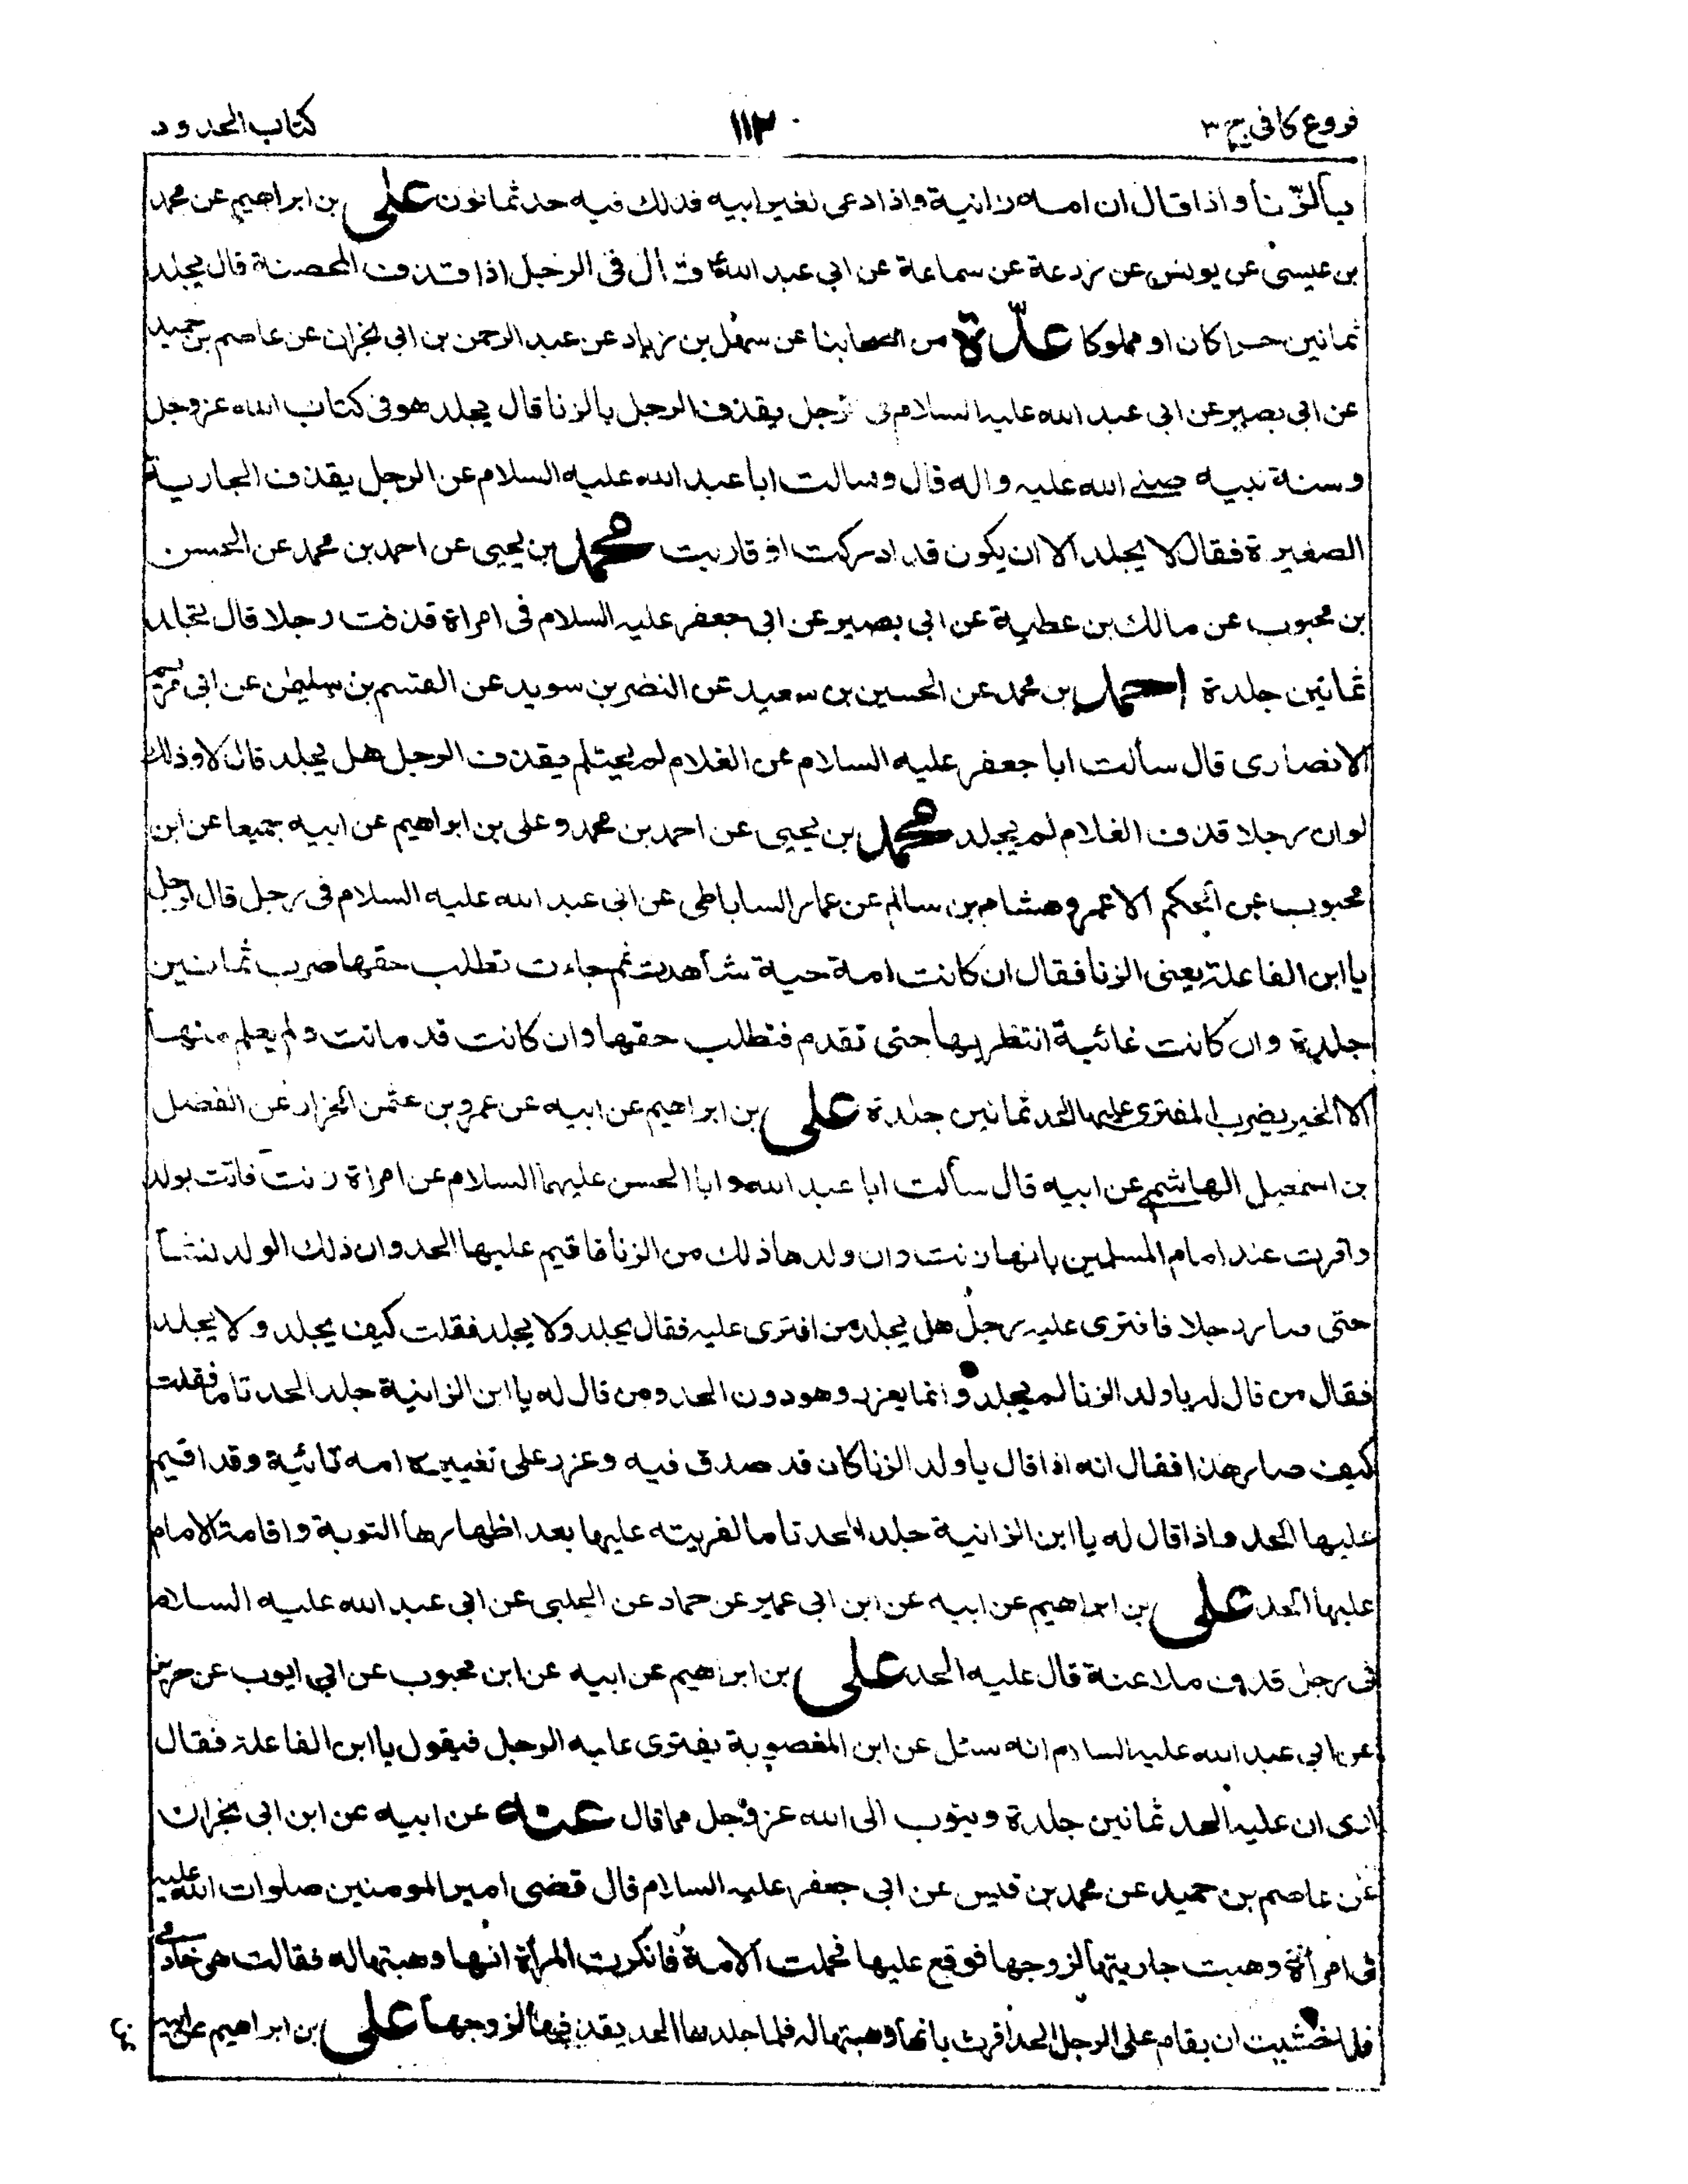 فروع كافى ج ٣
١١٣
كتاب الحدود
بالزّنا واذا قال ان امه زانية واذا دعى لغير ابيه فذلك فيه حد ثمانون على بن ابراهيم عن محمد
بن عيسى عن يونس عن زرعة عن سماعة عن ابي عبد الله ع قال فى الرجل اذا قذف المحصنة قال يجلد
ثمانين حرا كان او مملوكا عدّة من اصحابنا عن سهل بن زياد عن عبد الرحمن بن ابي نجران عن عاصم بن حميد
عن ابي بصير عن ابي عبد الله عليه السلام فى رجل يقذف الرجل بالزنا قال يجلد هو فى كتاب الله عز وجل
و سنة نبيه صلى الله عليه و اله قال و سالت ابا عبد الله عليه السلام عن الرجل يقذف الجارية
الصغيرة فقال لا يجلد الا ان يكون قد ادركت او قاربت محمد بن يحيى عن احمد بن محمد عن الحسن
بن محبوب عن مالك بن عطية عن ابي بصير عن ابي جعفر عليه السلام فى امراة قذفت رجلا قال تجلد
ثمانين جلدة احمد بن محمد عن الحسين بن سعيد عن النضر بن سويد عن القسم بن سليمن عن ابي مريم
الانصارى قال سألت ابا جعفر عليه السلام عن الغلام لم يحتلم يقذف الرجل هل يجلد قال لا و ذلك
لو ان رجلا قذف الغلام لم يجلد محمد بن يحيى عن احمد بن محمد و على بن ابراهيم عن ابيه جميعا عن ابن
محبوب عن الحكم الاعمى و هشام بن سالم عن عمار الساباطى عن ابي عبد الله عليه السلام فى رجل قال لرجل
يا ابن الفاعلة يعنى الزنا فقال ان كانت امة حية شاهدت ثم جاءت تطلب حقها ضرب ثمانين
جلدة و ان كانت غائبة انتظر بها حتى تقدم فتطلب حقها و ان كانت قد ماتت و لم يعلم منها
الا الخير يضرب المفترى عليها الحد ثمانين جلدة على بن ابراهيم عن ابيه عن عمرو بن عثمن الخزاز عن الفضل
بن اسمعيل الهاشمى عن ابيه قال سألت ابا عبد الله و ابا الحسن عليهما السلام عن امراة زنت فاتت بولد
و اقرت عند امام المسلمين بانها زنت و ان ولدها ذلك من الزنا فاقيم عليها الحد و ان ذلك الولد نشا
حتى صار رجلا فافترى عليه رجل هل يجلد من افترى عليه فقال يجلد و لا يجلد فقلت كيف يجلد و لا يجلد
فقال من قال له يا ولد الزنا لم يجلد و انما يعزر و هو دون الحد و من قال له يا ابن الزانية جلد الحد تاما فقلت
كيف صار هذا فقال انه اذا قال يا ولد الزنا كان قد صدق فيه و عزر على تعييره امه ثانية و قد اقيم
عليها الحد و اذا قال له يا ابن الزانية جلد الحد تاما لفريته عليها بعد اظهارها التوبة و اقامة الامام
عليها الحد على بن ابراهيم عن ابيه عن ابن ابي عمير عن حماد عن الحلبى عن ابي عبد الله عليه السلام
فى رجل قذف ملاعنة قال عليه الحد على بن ابراهيم عن ابيه عن ابن محبوب عن ابي ايوب عن حريز
عن ابي عبد الله عليه السلام انه سئل عن ابن المغصوبة يفترى عليه الرجل فيقول يا ابن الفاعلة فقال
ارى ان عليه الحد ثمانين جلدة و يتوب الى الله عز و جل مما قال عنه عن ابيه عن ابن ابي نجران
عن عاصم بن حميد عن محمد بن قيس عن ابي جعفر عليه السلام قال قضى امير المومنين صلوات الله عليه
فى امرأة وهبت جاريتها لزوجها فوقع عليها فحملت الامة فانكرت المرأة انها وهبتها له فقالت هى خادمى
فلما خشيت ان يقام على الرجل الحد اقرت بانها وهبتها له فلما جلدها الحد يقذفها لزوجها على بن ابراهيم عن ابيه